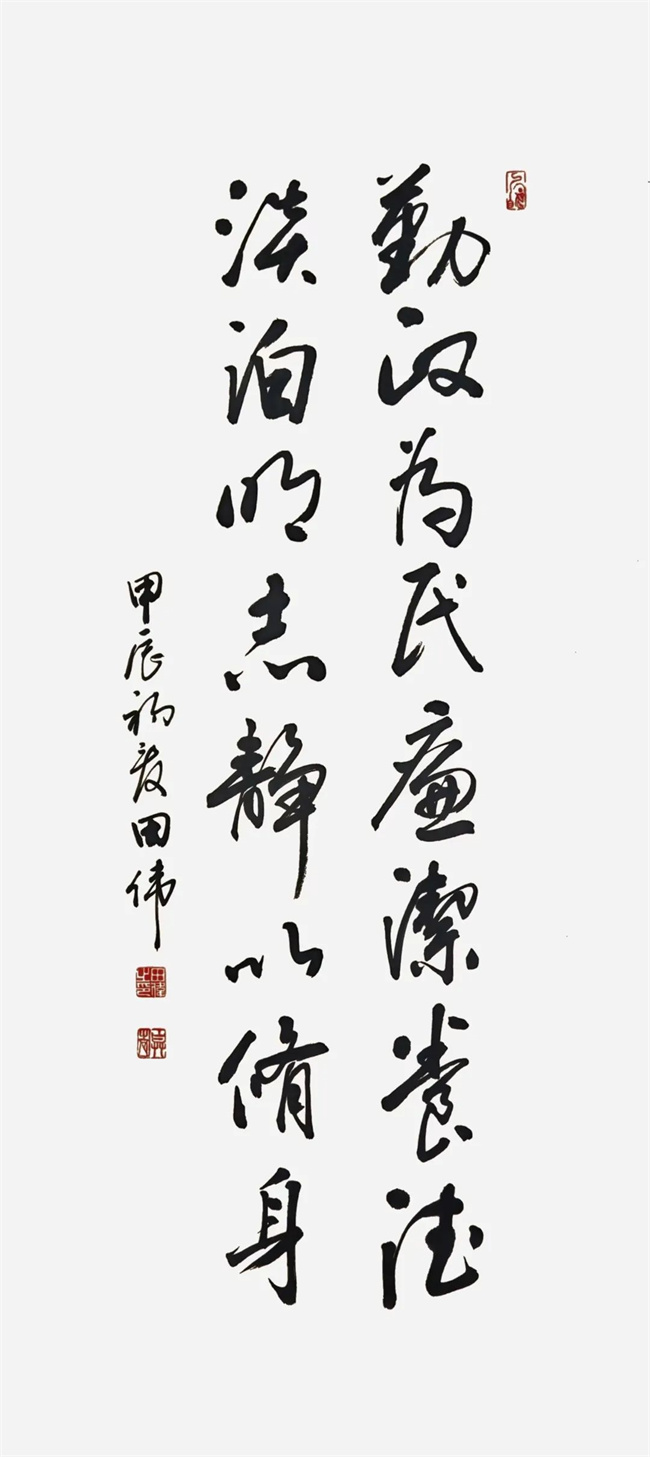 勤政为民廉潔養德
淡泊明志静以脩身
甲辰初夏田伟